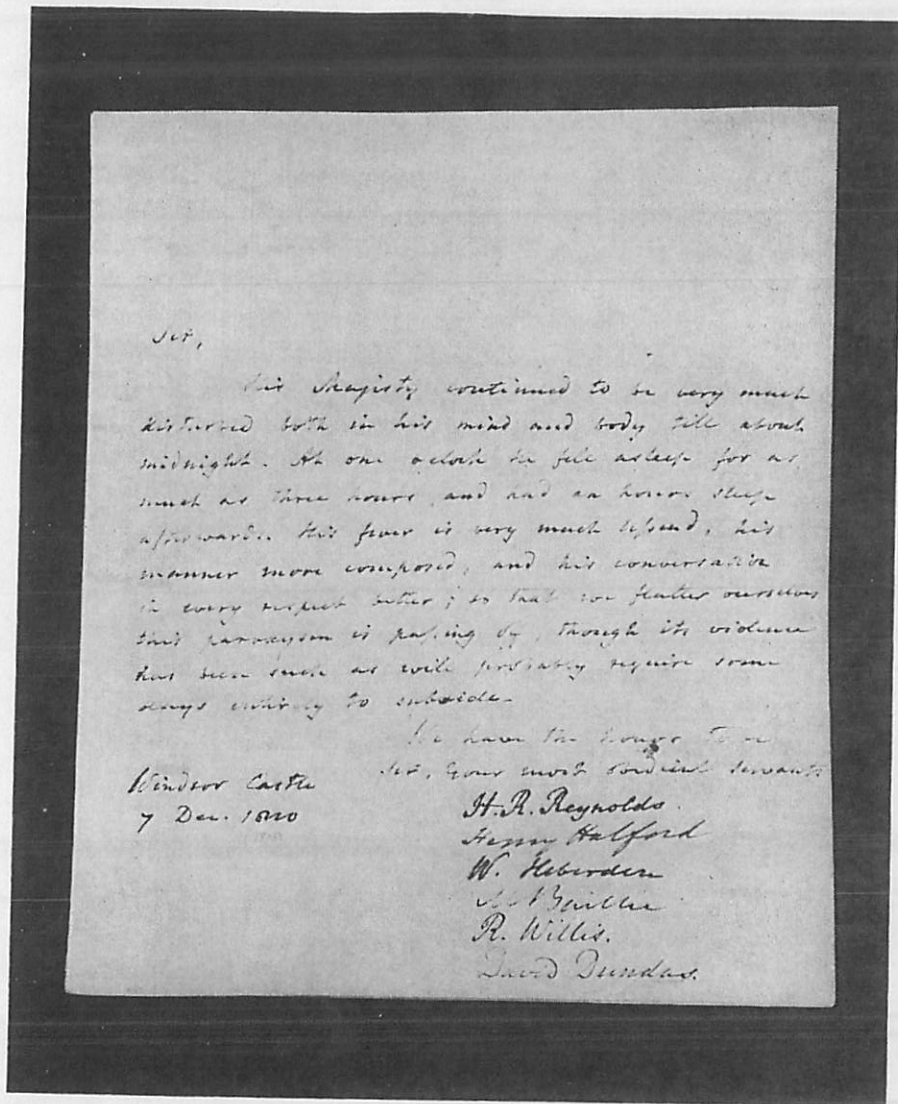 Sir,
His Majesty continued to be very much
disturbed both in his mind and body till about
midnight. At one o'clock he fell asleep for as
much as three hours, and had an hours sleep
afterwards. His fever is very much lessened, his
manner more composed, and his conversation
in every respect better; so that we flatter ourselves
this paroxysm is passing by, though its violence
has been such as will probably require some
days entirely to subside.
We have the honor to be
Sir, Your most obedient servants
Windsor Castle
7 Dec.
H. R. Reynolds.
Henry Halford
W. Heberden
M Baillie
R. Willis.
David Dundas.